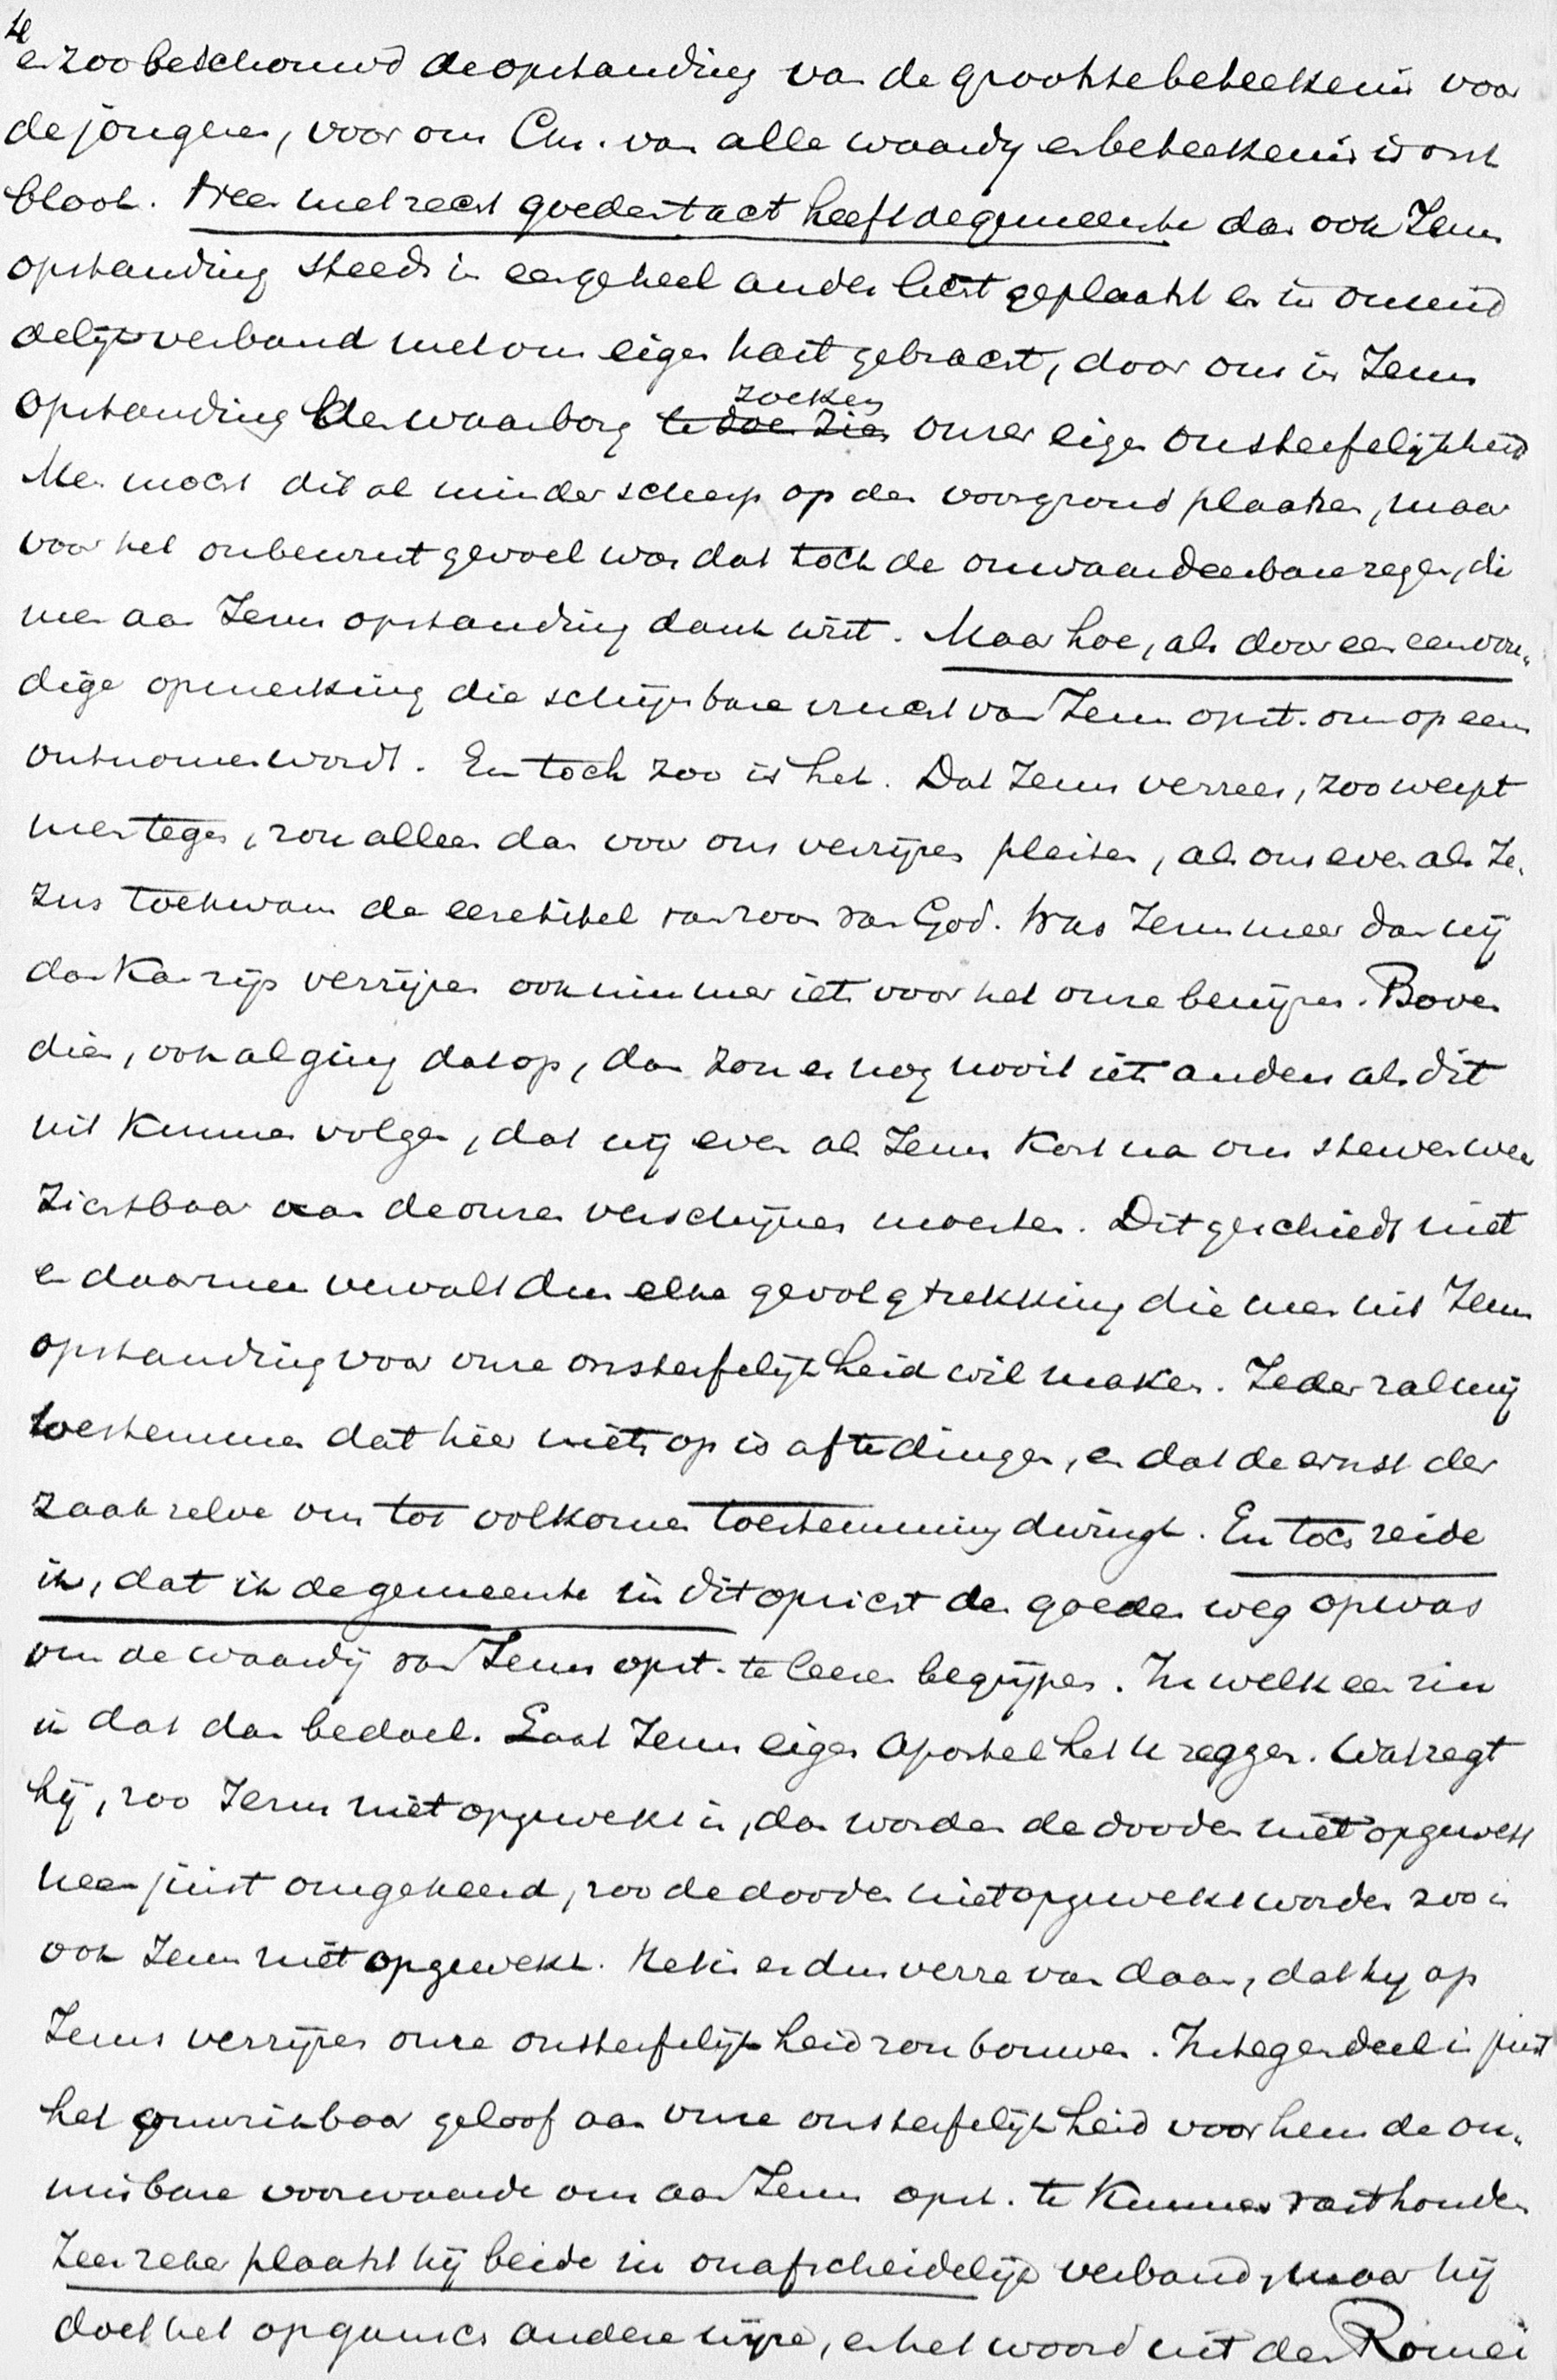 4
en zoo beschouwd de opstanding van de grootste beteekenis voor
de jongeren, voor ons Chr. van alle waardij en beteekenis is ont
bloot. Neen met recht goeden tact heeft de gemeente dan ook Jezus
opstanding steeds in een geheel ander licht geplaatst en in onmid
delijk verband met ons eigen hart gebracht, door ons in Jezus
opstanding den waarborg te doen zien zoeken onzer eigen onsterfelijkheid
Men mocht dit al minder scherp op den voorgrond plaatsen, maar
voor het onbewust gevoel was dat toch de onwaardeerbare zegen, die
men aan Jezus opstanding dank wist. Maar hoe, als door een eenvou-
dige opmerking die schijnbare vrucht van Jezus opst. ons op eens
ontnomen wordt. En toch zoo is het. Dat Jezus verrees, zoo werpt
men tegen, zou alleen dan voor ons verrijzen pleiten, als ons even als Je-
zus toekwam de eeretitel van zoon van God. Was Jezus meer dan wij
dan kan zijn verrijzen ook nimmer iets voor het onze bewijzen. Boven
dien, ook al ging dat op, dan zou er nog nooit iets anders als dit
uit kunnen volgen, dat wij even als Jezus kort na ons sterven weer
zichtbaar aan de onzen verschijnen moesten. Dit geschiedt niet
en daarmee vervalt dus elke gevolgtrekking die men uit Jezus
opstanding voor onze onsterfelijkheid wil maken. Ieder zal mij
toestemmen dat hier niets op is af te dingen, en dat de ernst der
zaak zelve ons tot volkomen toestemming dwingt. En toch zeide
ik, dat ik de gemeente in dit opzicht den goeden weg op was
om de waardij van Jezus opst. te leeren begrijpen. In welk een zin
is dat dan bedoel. Laat Jezus eigen Apostel het u zeggen. Wat zegt
hij, zoo Jezus niet opgewekt is, dan worden de dooden niet opgewekt
neen juist omgekeerd, zoo de dooden niet opgewekt worden zoo is
ook Jezus niet opgewekt. Het is er dus verre van daan, dat hij op
Jezus verrijzen onze onsterfelijkheid zou bouwen. Integendeel is juist
het onwrikbaar geloof aan onze onsterfelijkheid voor hem de on-
misbare voorwaarde om aan Jezus opst. te kunnen vasthouden
Zeer zeker plaatst hij beide in onafscheidelijk verband, maar hij
doet het op gansch andere wijze, en het woord uit den Romei